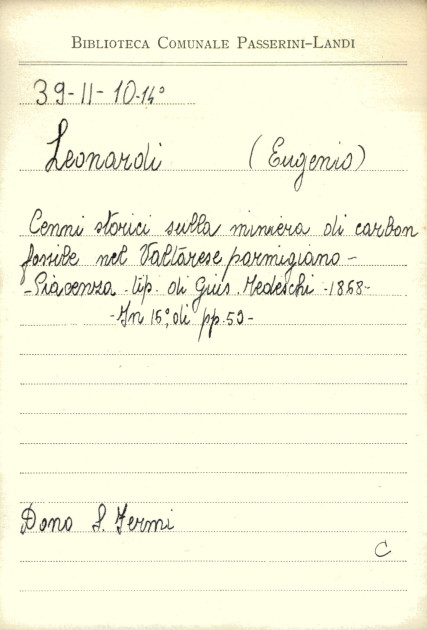 BIBLIOTECA COMUNALE PASSERINI-LANDI
39-11-10-14°
Leonardi (Eugenio)
Cenni storici sulla miniera di carbon
fossile nel Valtarese parmigiano -
- Piacenza - tip. di Gius. Tedeschi - 1868 -
- In 16°, di pp. 50 -
Dono S. Fermi
C